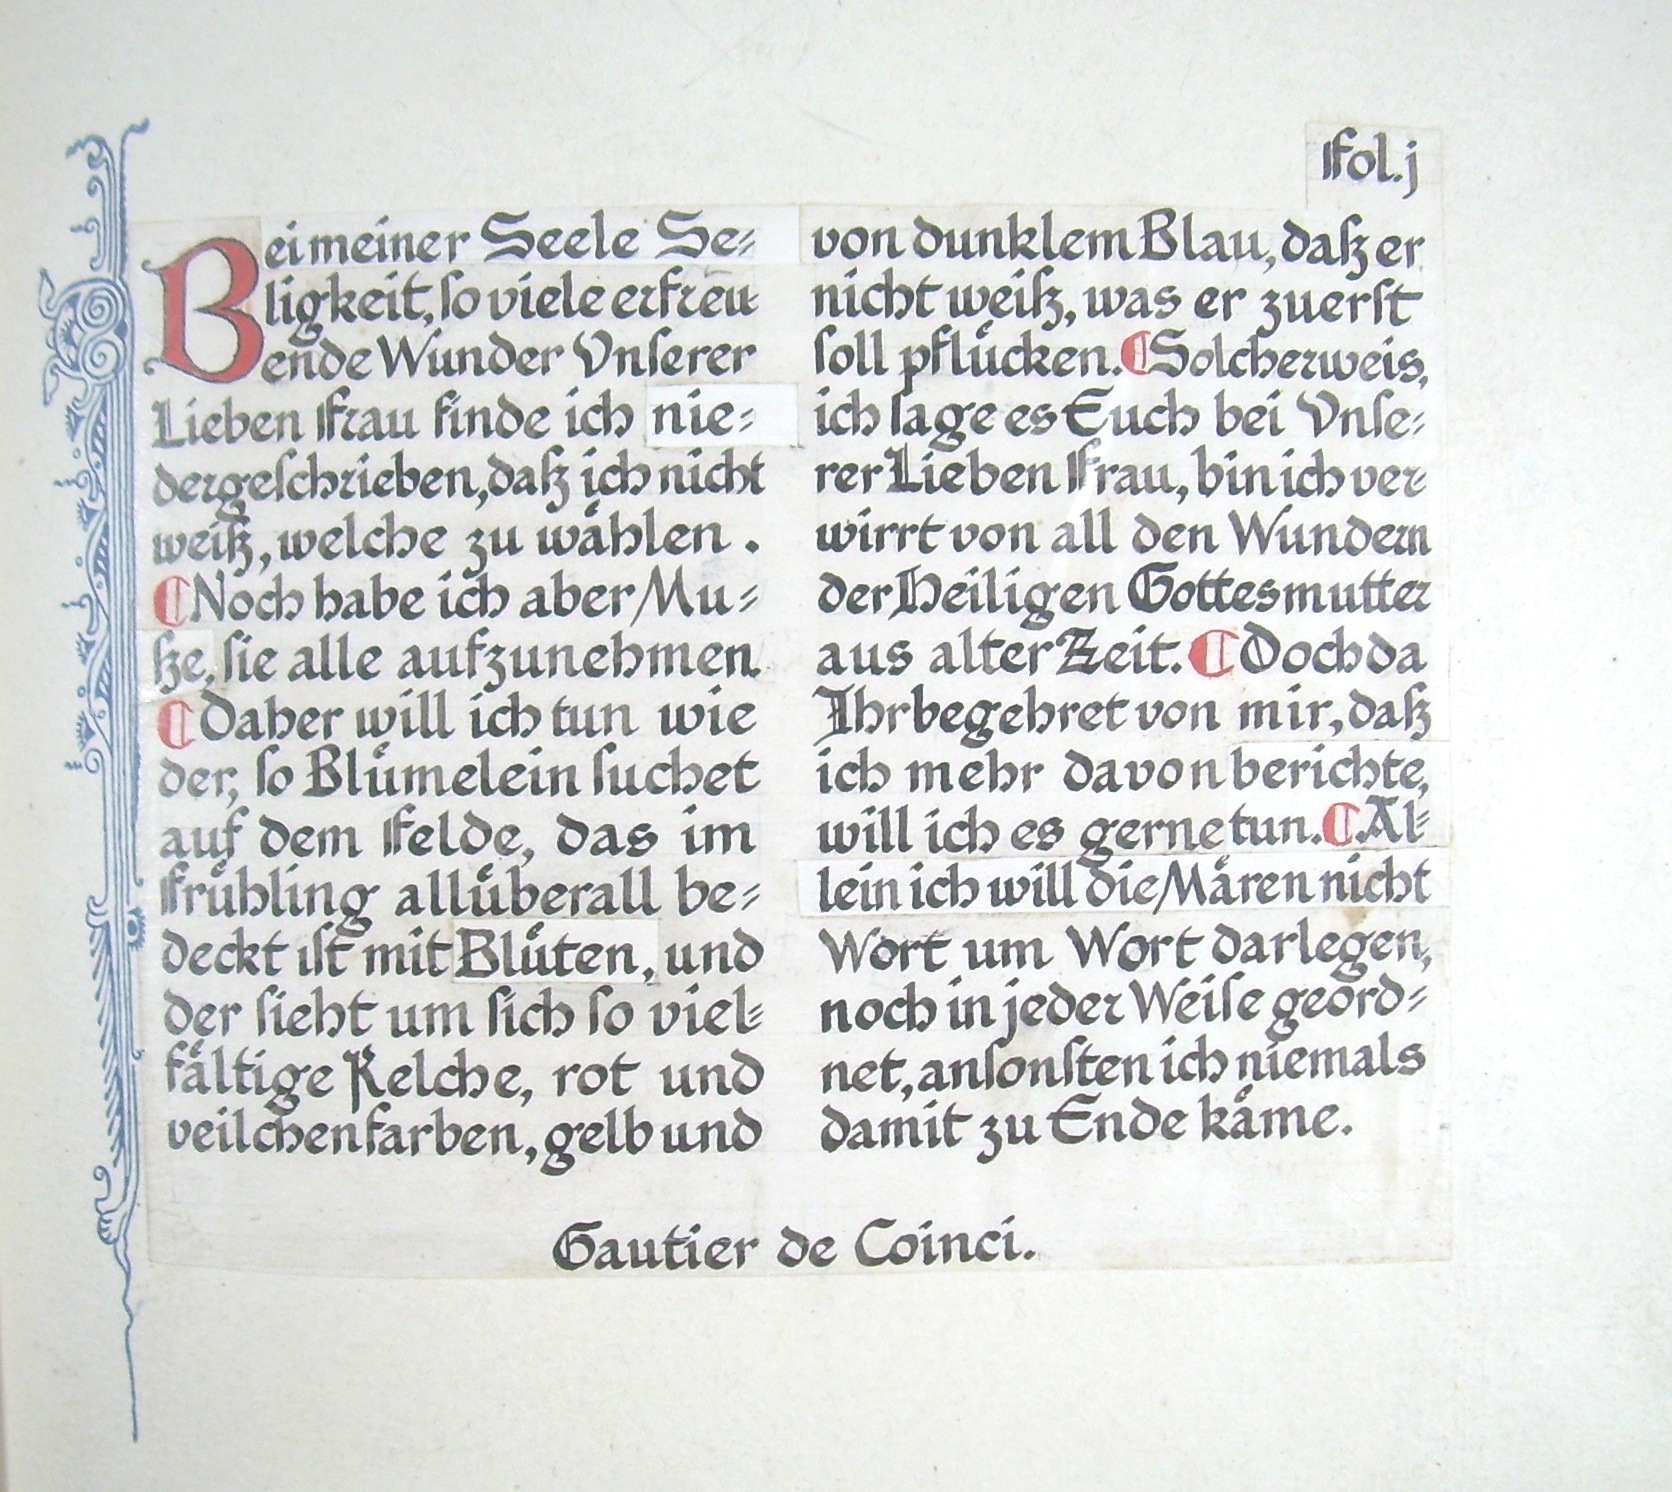 Fol. j
Bei meiner Seele Se=
ligkeit, ſo viele erfreu
ende Wunder Vnſerer
Lieben Frau finde ich nie=
dergeſchrieben, daß ich nicht
weiß, welche zu wählen.
¶ Noch habe ich aber Mu=
ße, ſie alle aufzunehmen.
¶ Daher will ich tun wie
der, ſo Blümelein ſuchet
auf dem Felde, das im
Frühling allüberall be=
deckt iſt mit Blüten, und
der ſieht um ſich ſo viel=
fältige Kelche, rot und
veilchenfarben, gelb und
von dunklem Blau, daß er
nicht weiß, was er zuerſt
ſoll pflücken. ¶ Solcherweis,
ich ſage es Euch bei Vnſe=
rer Lieben Frau, bin ich ver
wirrt von all den Wundern
der Heiligen Gottesmutter
aus alter Zeit. ¶ Doch da
Ihr begehret von mir, daß
ich mehr davon berichte,
will ich es gerne tun. ¶ Al=
lein ich will die Mären nicht
Wort um Wort darlegen,
noch in jeder Weiſe geord=
net, anſonſten ich niemals
damit zu Ende käme.
Gautier de Coinci.